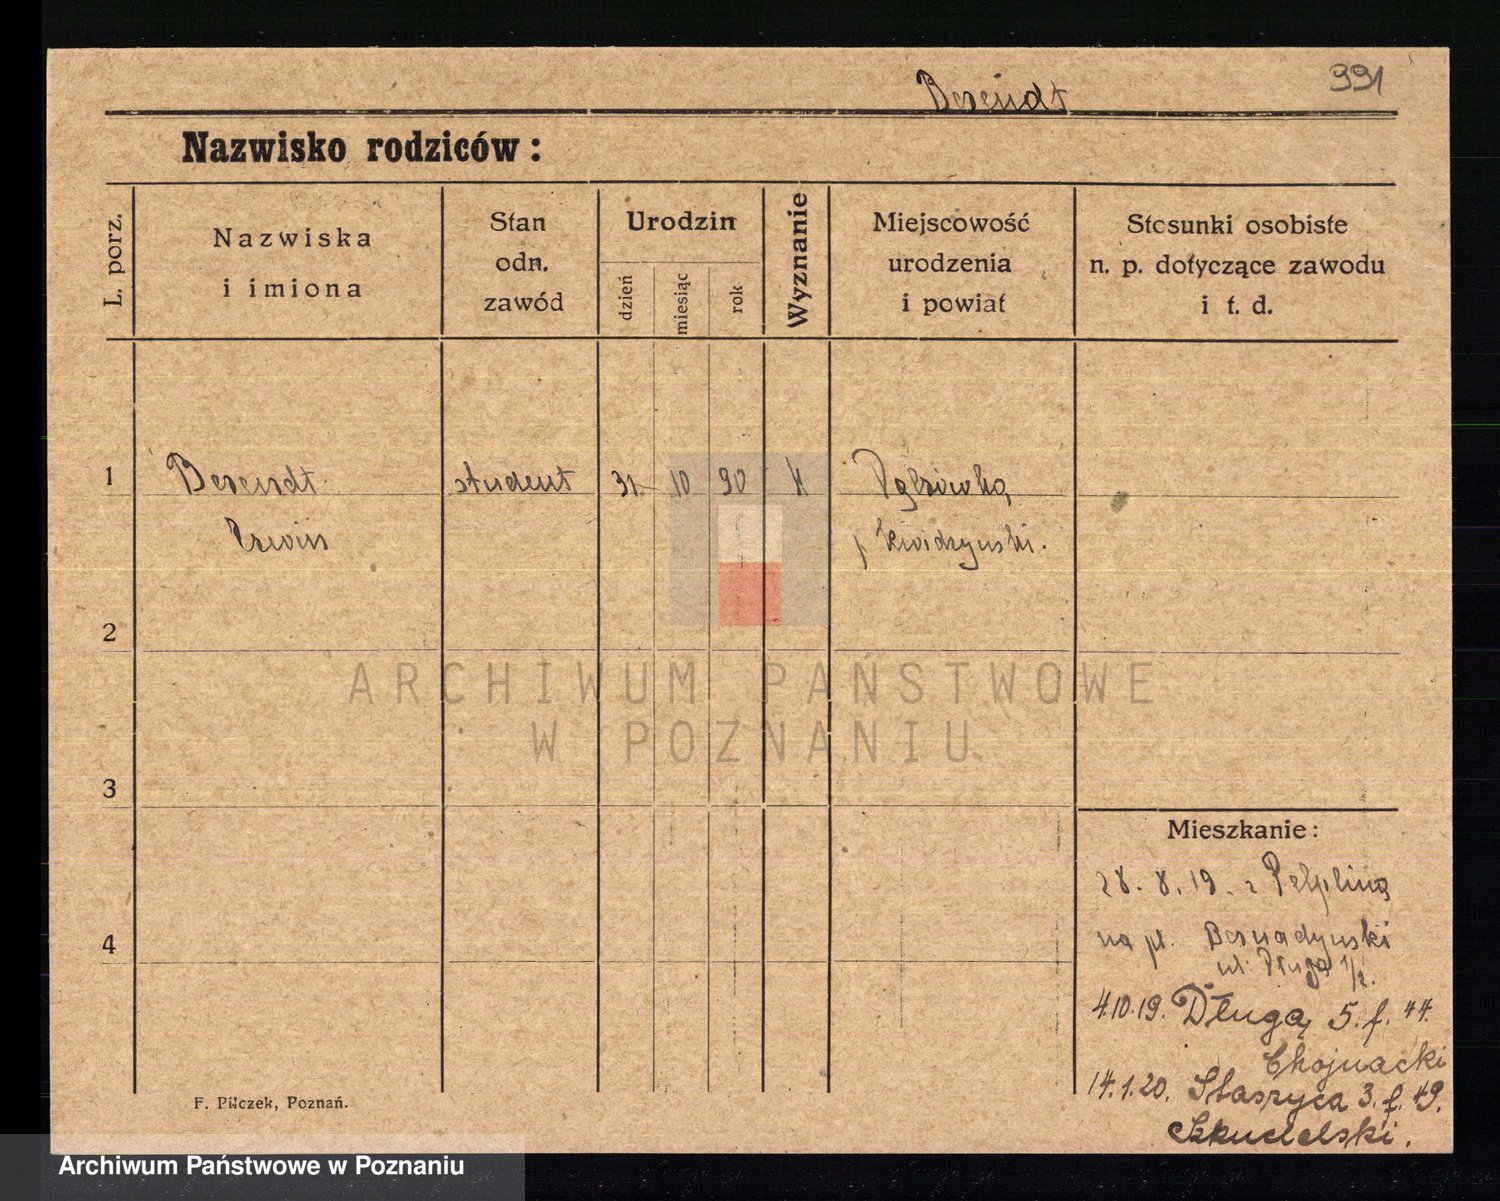 Berendt
991
Nazwisko rodziców:
L. porz.
Nazwiska
i imiona
Stan
odn.
zawód
Urodzin
dzień
miesiąc
rok
Wyznanie
Miejscowość
urodzenia
i powiat
Stosunki osobiste
n. p. dotyczące zawodu
i t. d.
1
Berendt student 31. 10 90 k
Erwin p Kwidzyński.
2
3
4
ARCHIWUM PAŃSTWOWE
W POZNANIU
Mieszkanie:
28. 8. 19. z Pelplina
na pl. Bernadyński
ul. Długa 1/2.
4.10.19. Długa 5. f. 44.
Chojnacki
14.1.20. Staszyca 3. f. 49.
F. Pilczek, Poznań.
Archiwum Państwowe w Poznaniu